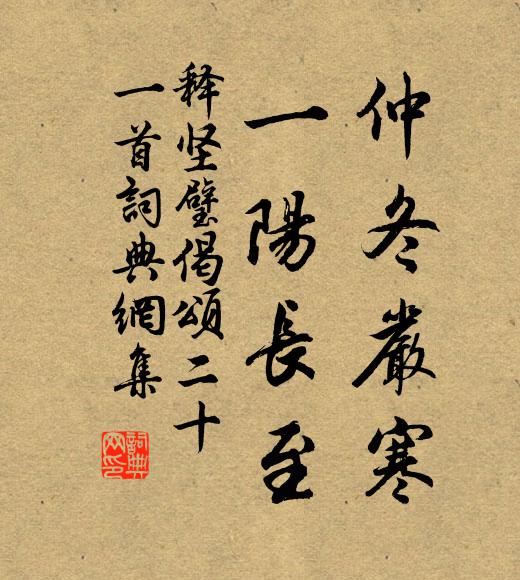 仲冬嚴寒
一陽長至
释坚璧偈頌二十
一首詞典網集
詞典
网印